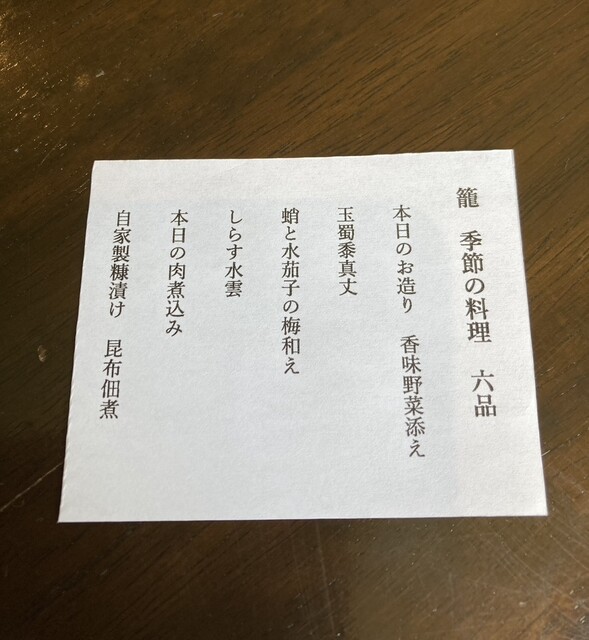 籠　季節の料理　六品
本日のお造り　香味野菜添え
玉蜀黍真丈
蛸と水茄子の梅和え
しらす水雲
本日の肉煮込み
自家製糠漬け　昆布佃煮